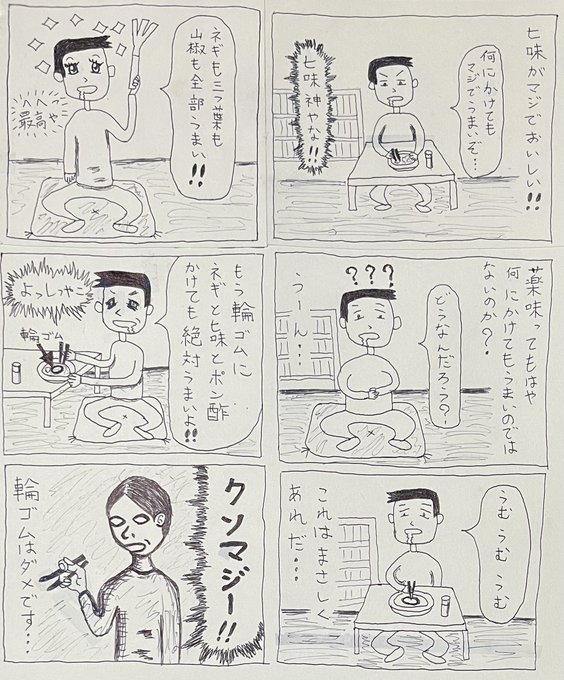 七味がマジでおいしい!!
何にかけても
マジでうまいぞ…
七味神やな!!
ネギも三つ葉も
山椒も全部うまい!!
最高
薬味ってもはや
何にかけてもうまいのでは
ないのか?
???
どうなんだろう?
うーん…
もう輪ゴムに
ネギと七味とポン酢
かけても絶対うまいよ!!
よっしゃー
輪ゴム
うむうむうむ
これはまさしく
あれだ…
クソマジー!!
輪ゴムはダメです…